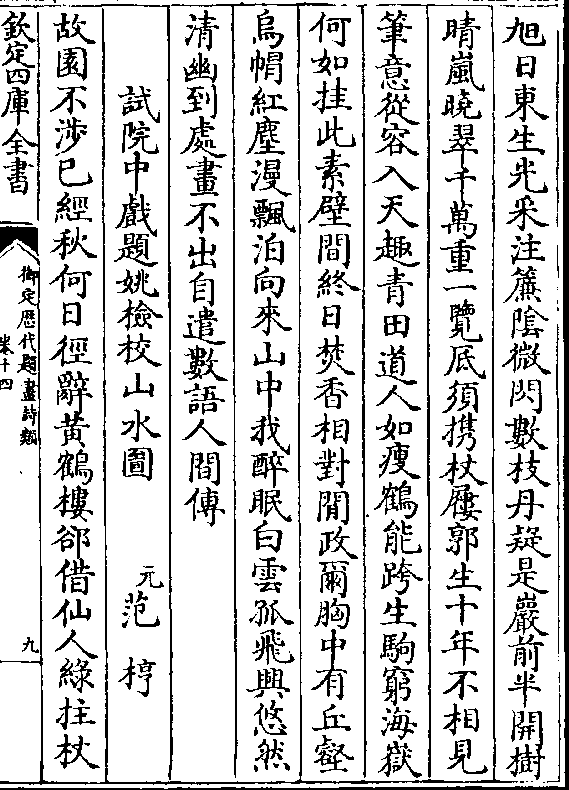 旭日東生光采注簾陰微閃數枝丹疑是巖前半開樹
晴嵐曉翠千萬重一覽底須携杖屨郭生十年不相見
筆意從容入天趣青田道人如瘦鶴能跨生駒窮海嶽
何如挂此素壁間終日焚香相對閒政爾胸中有丘壑
烏帽紅塵漫飄泊向來山中我醉眠白雲孤飛興悠然
清幽到處畫不出自遣數語人間傳
試院中戲題姚檢校山水圖
元范梈
故園不涉已經秋何日徑辭黃鶴樓郤借仙人綠拄杖
欽定四庫全書
御定歷代題畫詩類
卷十四
九